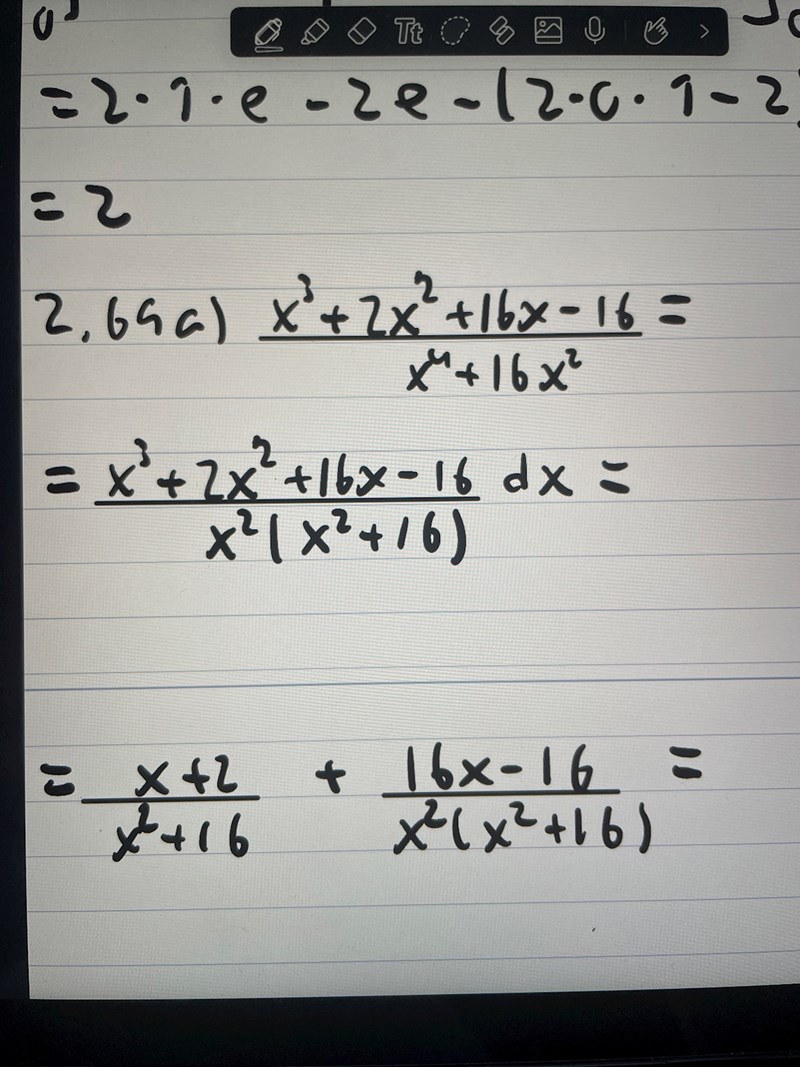 = 2 · 1 · e - 2e - (2 · 0 · 1 - 2
= 2
2,69a) x³ + 2x² + 16x - 16 =
x⁴ + 16x²
= x³ + 2x² + 16x - 16 dx =
x²(x² + 16)
= x + 2 + 16x - 16 =
x² + 16 x²(x² + 16)